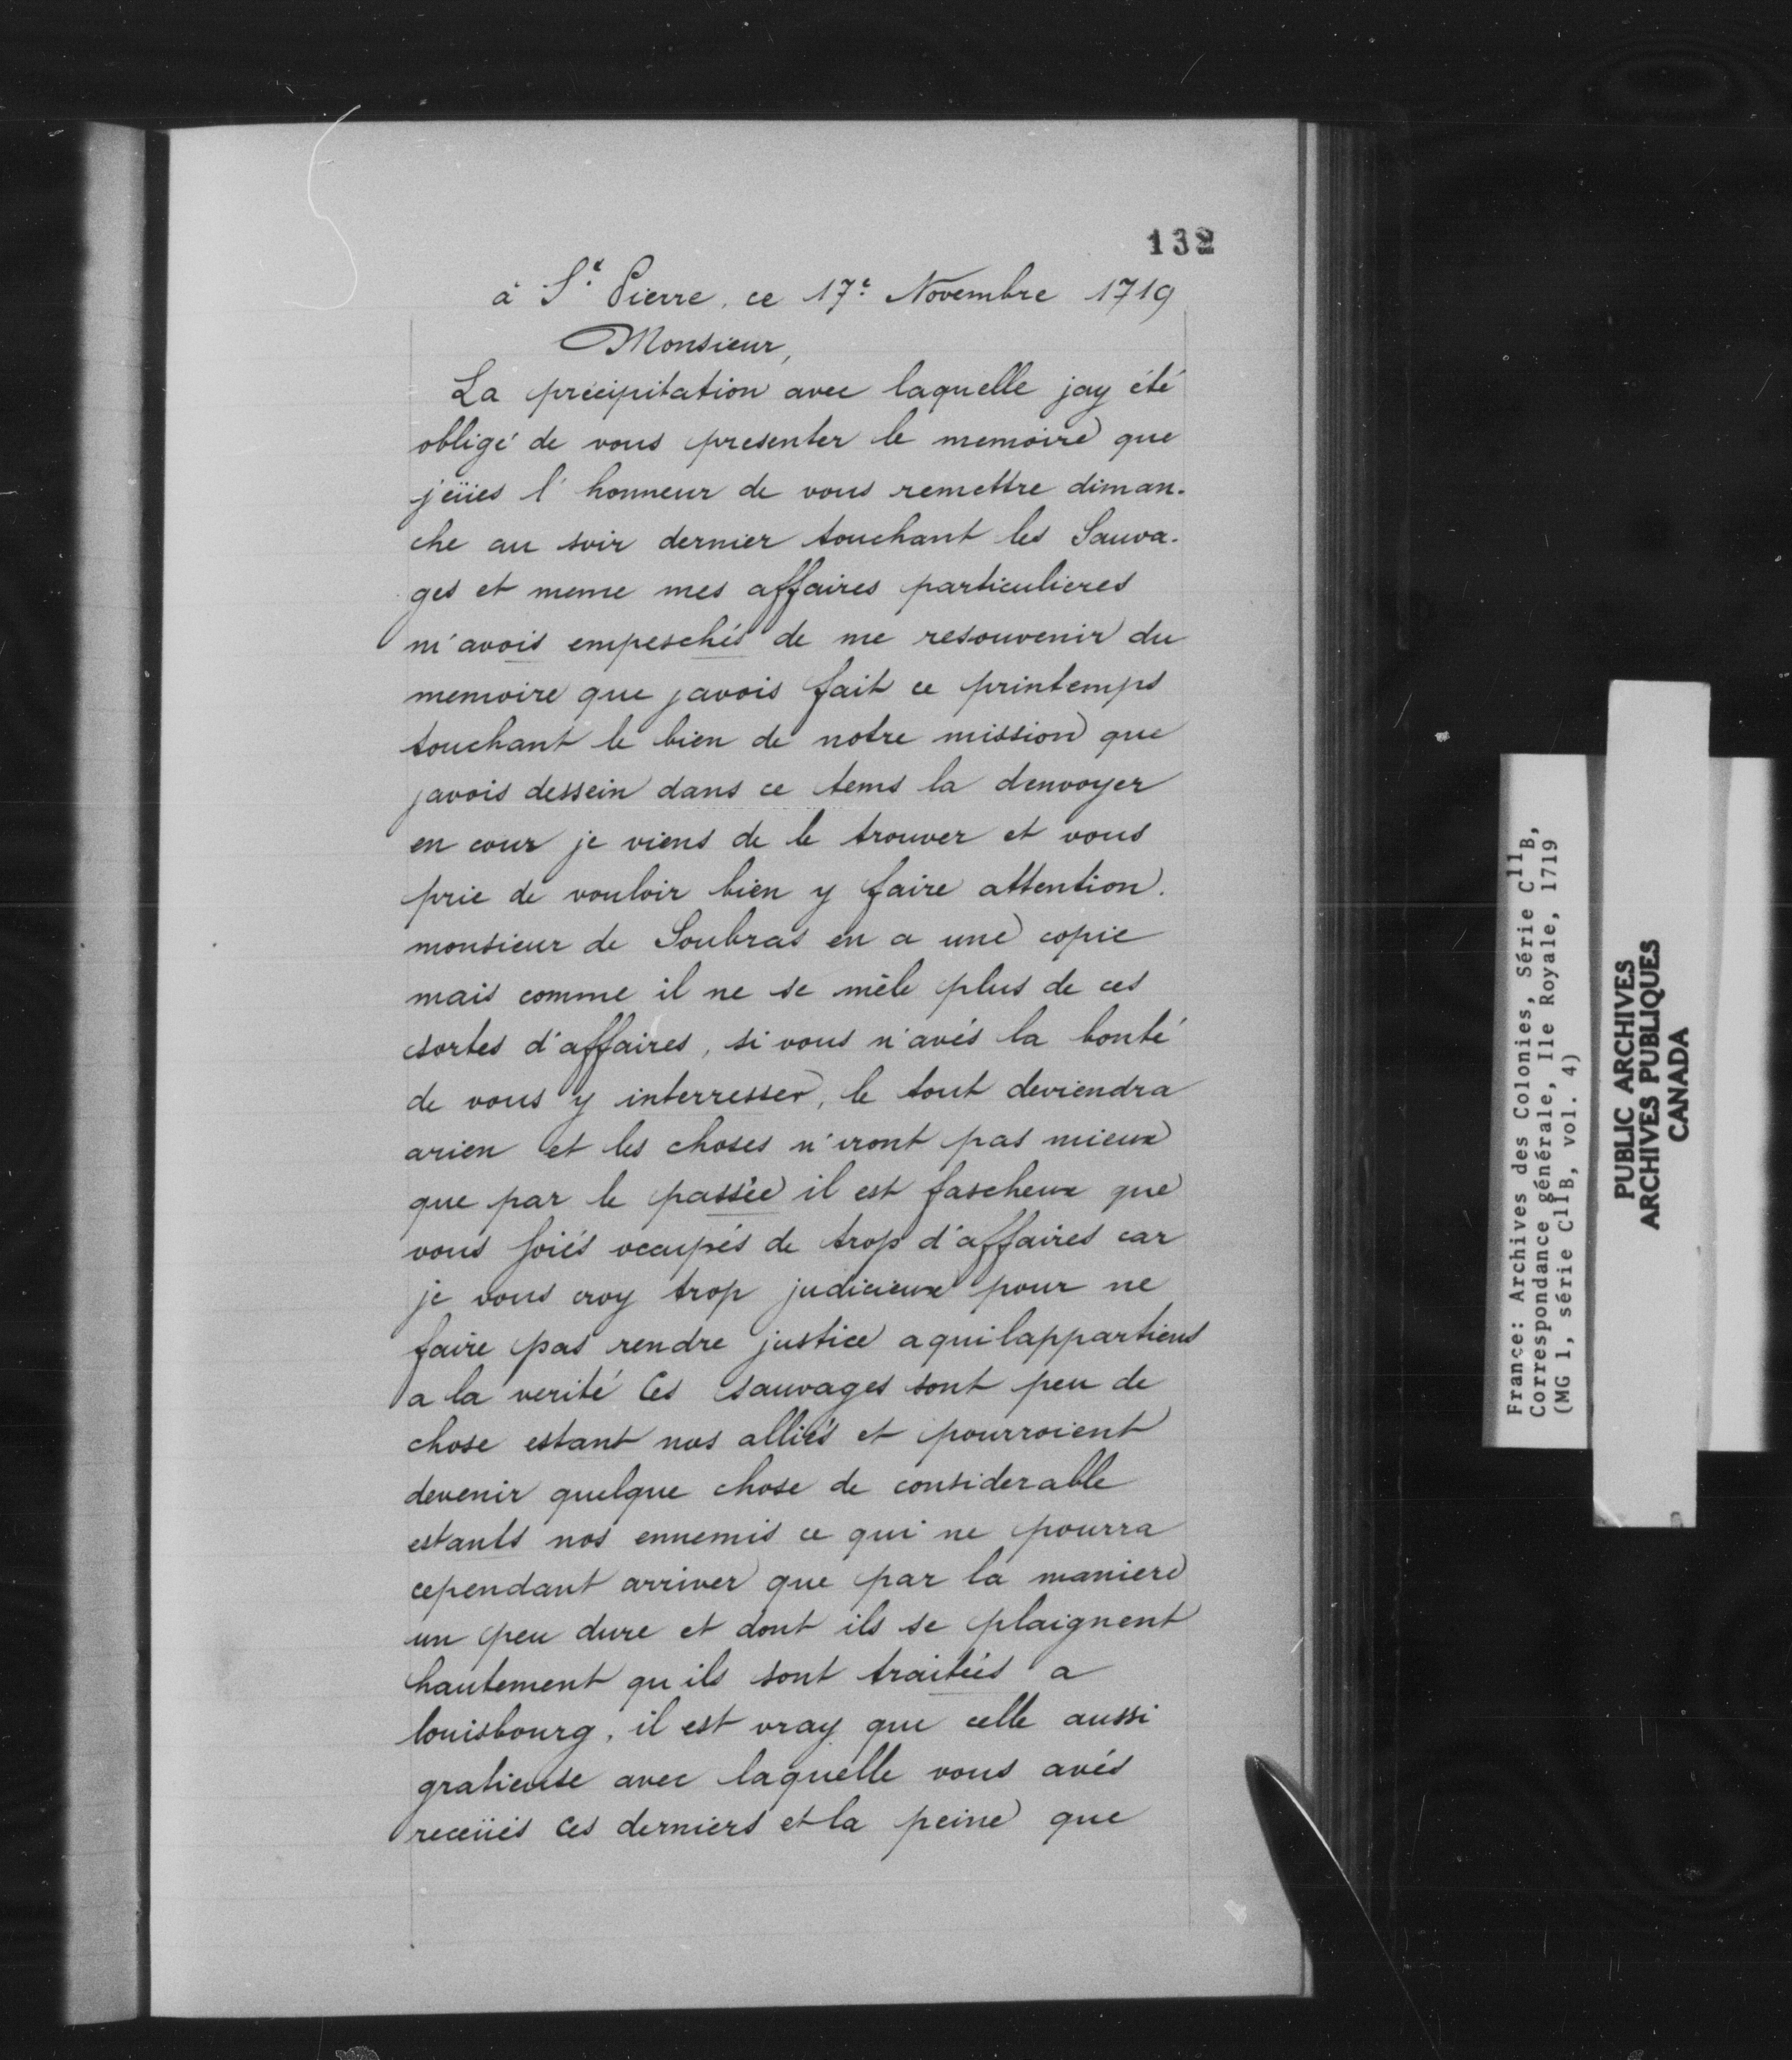 132
à S.t Pierre, ce 17.e Novembre 1719
Monsieur,
La précipitation avec laquelle jay été
obligé de vous presenter le memoire que
j'eües l'honneur de vous remettre diman-
che au soir dernier touchant les Sauva-
ges et meme mes affaires particulieres
m'avois empeschés de me resouvenir du
memoire que javois fait ce printemps
touchant le bien de notre mission que
javois dessein dans ce tems la denvoyer
en cour je viens de le trouver et vous
prie de vouloir bien y faire attention.
monsieur de Soubras en a une copie
mais comme il ne se mêle plus de ces
sortes d'affaires, si vous n'avés la bonté
de vous y interresser, le tout deviendra
arien et les choses n'iront pas mieux
que par le passée il est fascheux que
vous soiés occupés de trop d'affaires car
je vous croy trop judicieux pour ne
faire pas rendre justice aquilappartiens
a la verité Ces sauvages sont peu de
chose estant nos alliés et pourroient
devenir quelque chose de considerable
estants nos ennemis ce qui ne pourra
cependant arriver que par la maniere
un peu dure et dont ils se plaignent
hautement qu'ils sont traitéés a
louisbourg, il est vray que celle aussi
gratieuse avec laquelle vous avés
receüés Ces derniers et la peine que
France: Archives des Colonies, Série C11B,
Correspondance générale, Ile Royale, 1719
(MG 1, série C11B, vol. 4)
PUBLIC ARCHIVES
ARCHIVES PUBLIQUES
CANADA